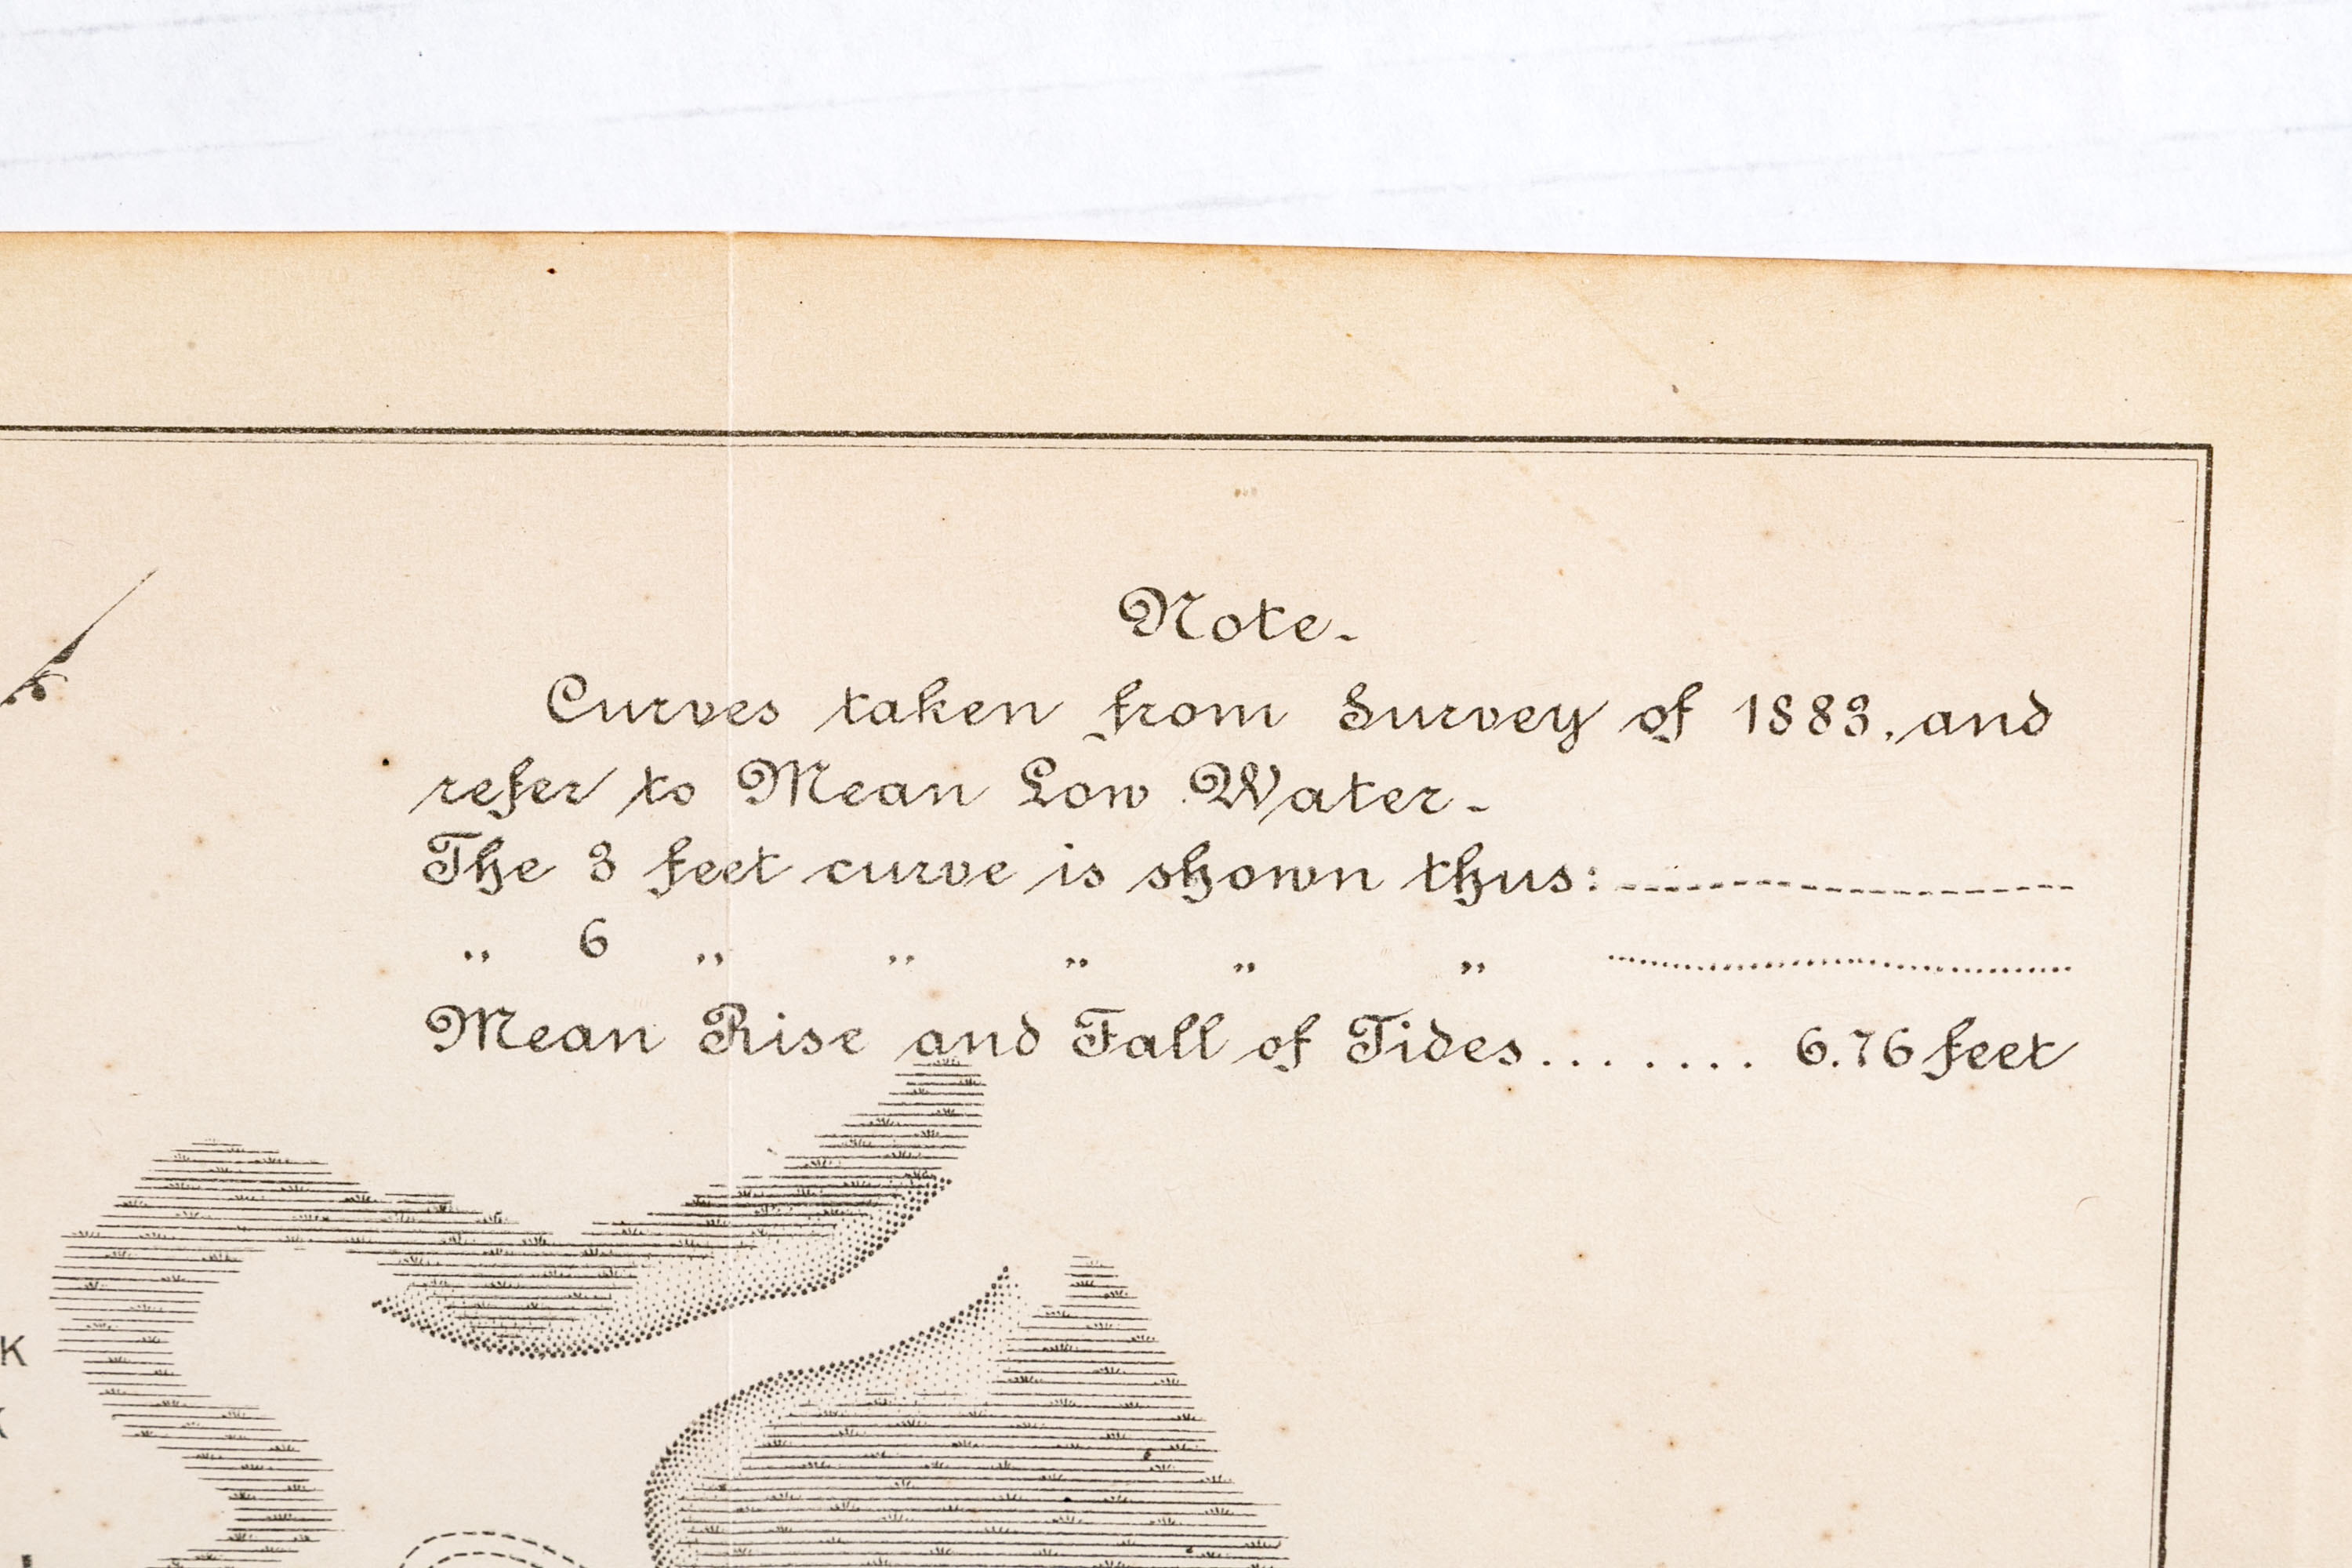 Note.
Curves taken from Survey of 1883, and
refer to Mean Low Water.
The 3 feet curve is shown thus:
" 6 " " " " "
Mean Rise and Fall of Tides........ 6.76 feet
K